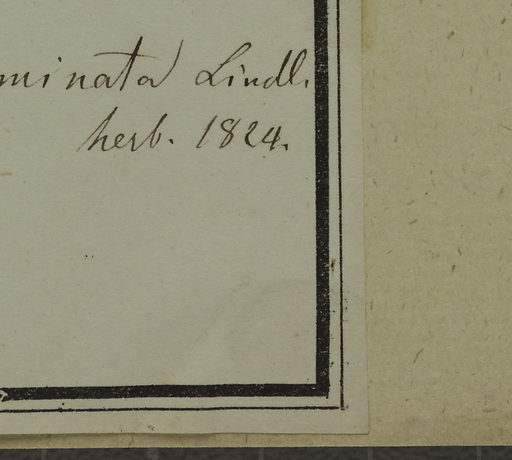 minata Lindl.
herb. 1824.